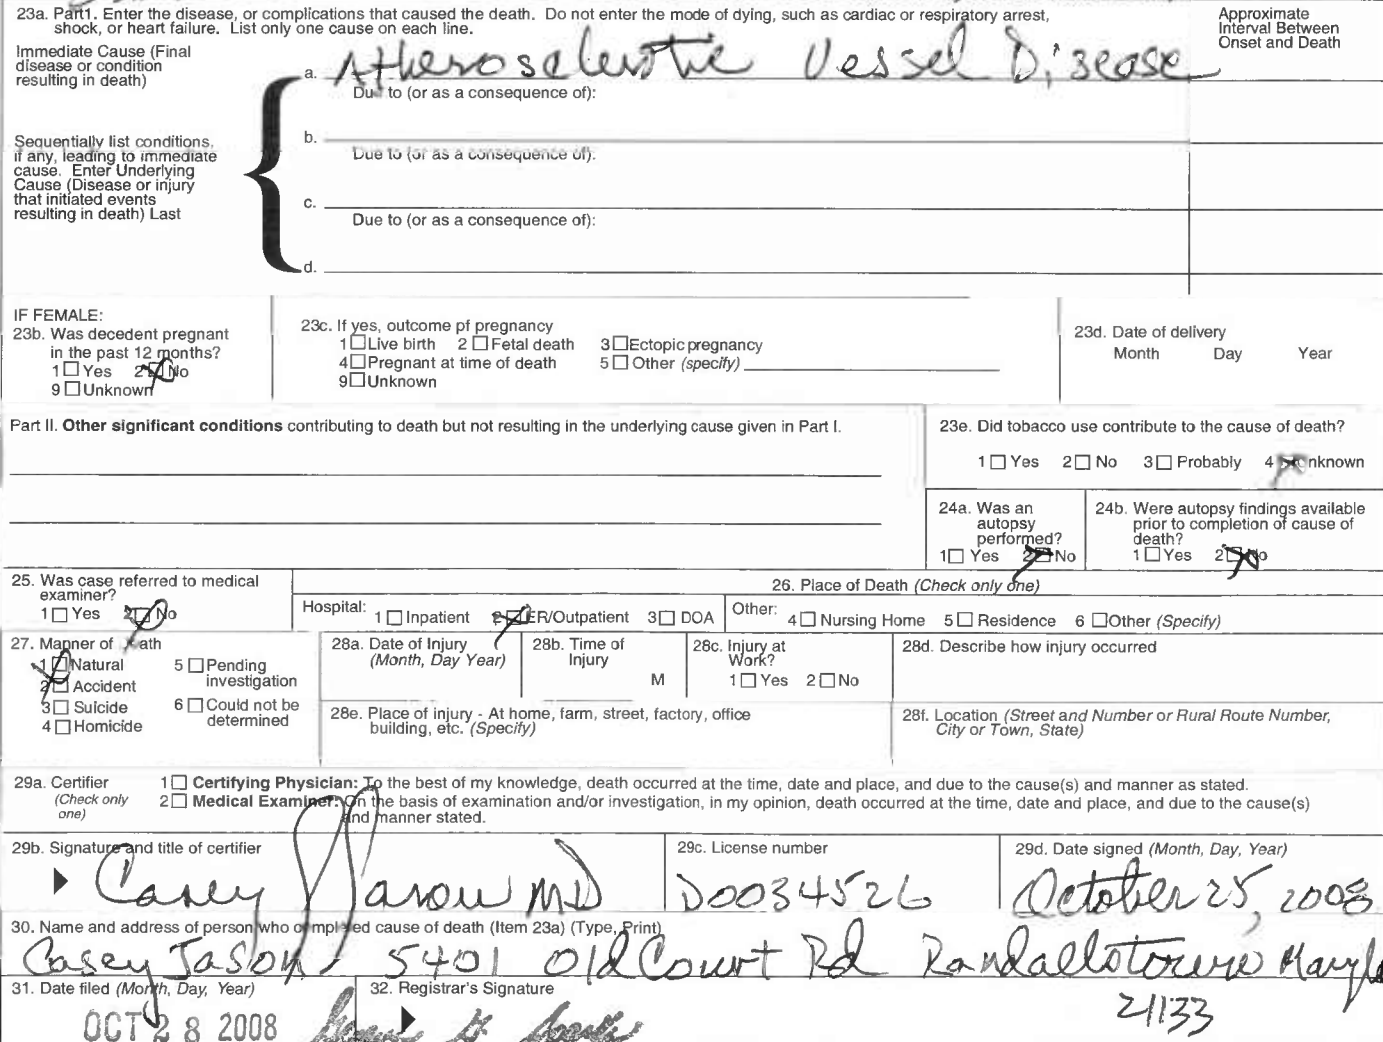 23a. Part1. Enter the disease, or complications that caused the death. Do not enter the mode of dying, such as cardiac or respiratory arrest,
shock, or heart failure. List only one cause on each line.
Approximate
Interval Between
Onset and Death
Immediate Cause (Final
disease or condition
resulting in death)
a. Atherosclerotic Vessel Disease
Due to (or as a consequence of):
Sequentially list conditions,
if any, leading to immediate
cause. Enter Underlying
Cause (Disease or injury
that initiated events
resulting in death) Last
b.
Due to (or as a consequence of):
c.
Due to (or as a consequence of):
d.
IF FEMALE:
23b. Was decedent pregnant
in the past 12 months?
1 ☐ Yes 2 ☒ No
9 ☐ Unknown
23c. If yes, outcome pf pregnancy
1 ☐ Live birth 2 ☐ Fetal death 3 ☐ Ectopic pregnancy
4 ☐ Pregnant at time of death 5 ☐ Other (specify)
9 ☐ Unknown
23d. Date of delivery
Month Day Year
Part II. Other significant conditions contributing to death but not resulting in the underlying cause given in Part I.
23e. Did tobacco use contribute to the cause of death?
1 ☐ Yes 2 ☐ No 3 ☐ Probably 4 ☒ Unknown
24a. Was an
autopsy
performed?
1 ☐ Yes 2 ☒ No
24b. Were autopsy findings available
prior to completion of cause of
death?
1 ☐ Yes 2 ☒ No
25. Was case referred to medical
examiner?
1 ☐ Yes 2 ☒ No
26. Place of Death (Check only one)
Hospital: 1 ☐ Inpatient 2 ☒ ER/Outpatient 3 ☐ DOA
Other: 4 ☐ Nursing Home 5 ☐ Residence 6 ☐ Other (Specify)
27. Manner of Death
1 ☒ Natural 5 ☐ Pending
investigation
2 ☐ Accident
3 ☐ Suicide 6 ☐ Could not be
determined
4 ☐ Homicide
28a. Date of Injury
(Month, Day Year)
28b. Time of
Injury
M
28c. Injury at
Work?
1 ☐ Yes 2 ☐ No
28d. Describe how injury occurred
28e. Place of injury - At home, farm, street, factory, office
building, etc. (Specify)
28f. Location (Street and Number or Rural Route Number,
City or Town, State)
29a. Certifier
(Check only
one)
1 ☐ Certifying Physician: To the best of my knowledge, death occurred at the time, date and place, and due to the cause(s) and manner as stated.
2 ☐ Medical Examiner: On the basis of examination and/or investigation, in my opinion, death occurred at the time, date and place, and due to the cause(s)
and manner stated.
29b. Signature and title of certifier
Casey Jason MD
29c. License number
D0034526
29d. Date signed (Month, Day, Year)
October 25, 2008
30. Name and address of person who completed cause of death (Item 23a) (Type, Print)
Casey Jason 5401 Old Court Rd Randallstown Maryla
21133
31. Date filed (Month, Day, Year)
OCT 28 2008
32. Registrar's Signature